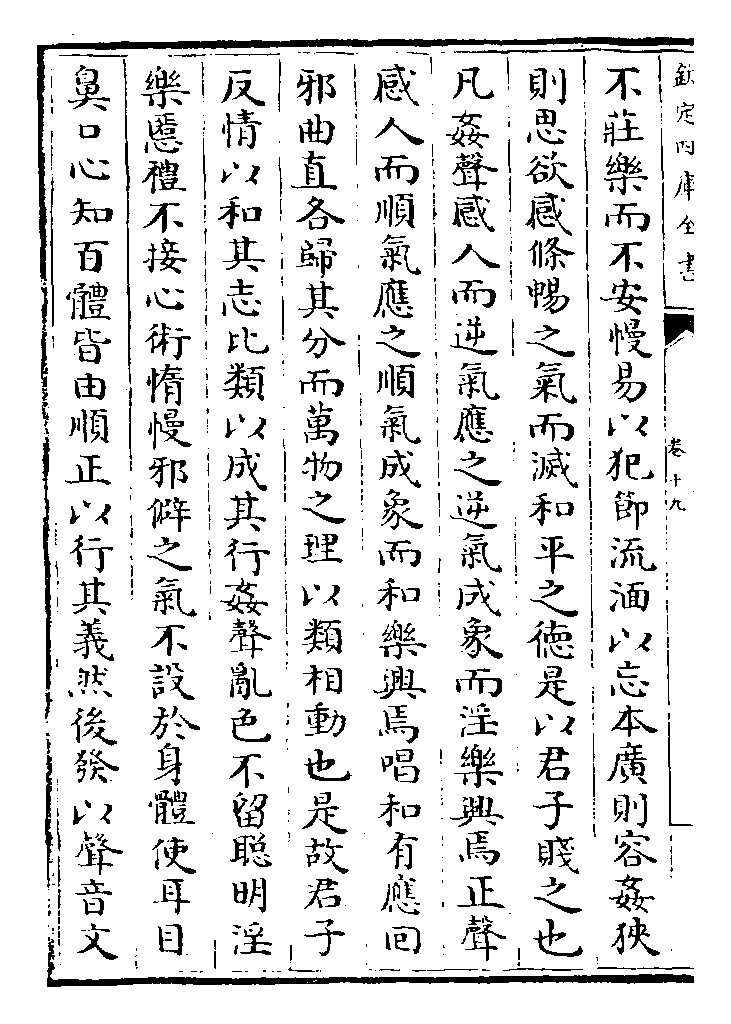 欽定四庫全書
卷十九
不莊樂而不安慢易以犯節流湎以忘本廣則容姦狹
則思欲感條暢之氣而滅和平之德是以君子賤之也
凡姦聲感人而逆氣應之逆氣成象而淫樂興焉正聲
感人而順氣應之順氣成象而和樂興焉唱和有應回
邪曲直各歸其分而萬物之理以類相動也是故君子
反情以和其志比類以成其行姦聲亂色不留聰明淫
樂慝禮不接心術惰慢邪僻之氣不設於身體使耳目
鼻口心知百體皆由順正以行其義然後發以聲音文